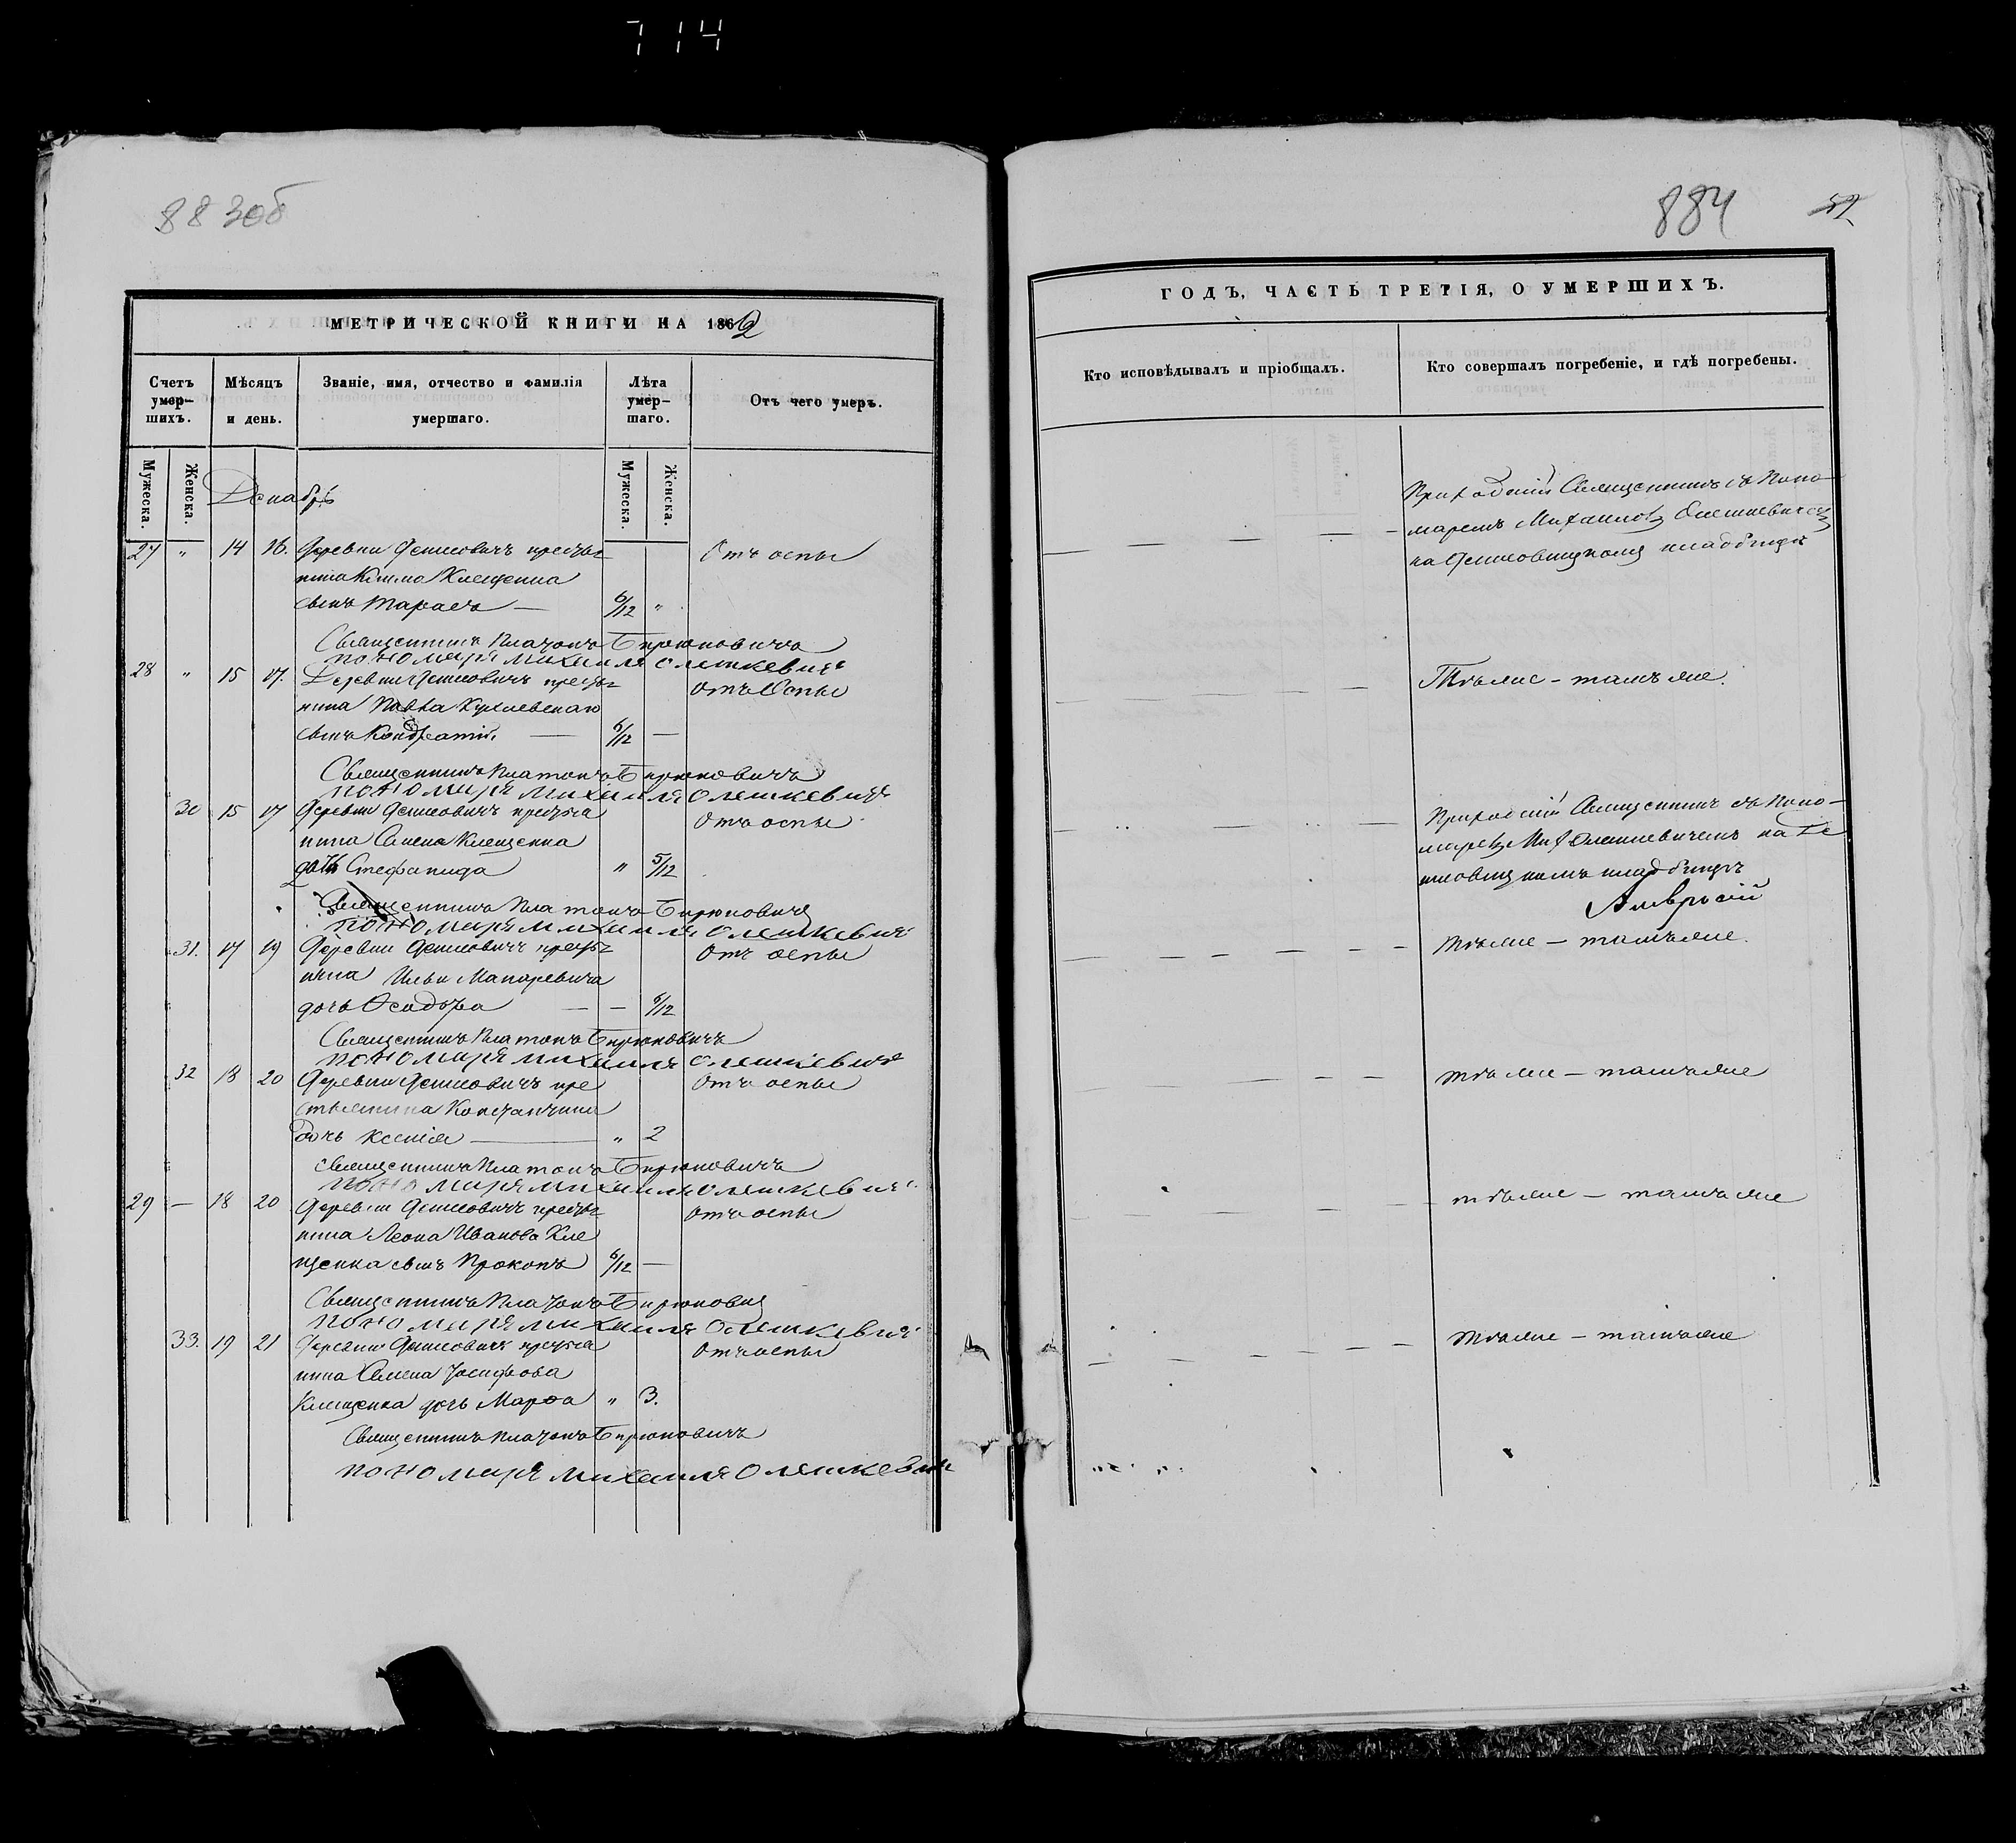 714
883об
884
МЕТРИЧЕСКОЙ КНИГИ НА 1862
Счетъ умер-шихъ.
Мѣсяцъ и день.
Званіе, имя, отчество и фамилія умершаго.
Лѣта умер-шаго.
Отъ чего умеръ.
Мужеска.
Женска.
Мужеска.
Женска.
Декабрь
27 " 14 16. Деревни Денисовичъ крестья Отъ оспы
нина Клещенка
сынъ Тарасъ — 6/12 "
Священникъ Платонъ Бирюковичъ
пономаръ михаилъ олешкевичъ
28 " 15 17. Деревни Денисовичъ крестья Отъ Оспы
нина Павла
сынъ Кондратій. — 6/12 —
Священникъ Платонъ Бирюковичъ
пономаръ михаилъ олешкевичъ
30 15 17 Деревни Денисовичъ крестья Отъ оспы
нина Семена Клещенка
дочь Стефанида " 5/12
Священникъ Платонъ Бирюковичъ
пономаръ михаилъ олешкевичъ
31. 17 19 Деревни Денисовичъ крестья Отъ оспы
нина Ильи Макаревича
дочь Феодора — — 6/12
Священникъ Платонъ Бирюковичъ
пономаръ михаилъ олешкевичъ
32 18 20 Деревни Денисовичъ кре Отъ оспы
стьянина
дочь Ксенія — " 2
священникъ Платонъ Бирюковичъ
пономаръ михаилъ олешкевичъ
29 — 18 20 Деревни Денисовичъ крестья Отъ оспы
нина Леона Иванова Кле
щенка сынъ Прокопъ 6/12 —
Священникъ Платонъ Бирюковичъ
пономаръ михаилъ олешкевичъ
33. 19 21 Деревни Денисовичъ крестья Отъ оспы
нина Семена Іосифова
Клещенка дочь Марѳа " 3.
Священникъ Платонъ Бирюковичъ
пономаръ михаилъ олешкевичъ
ГОДЪ, ЧАСТЬ ТРЕТІЯ, О УМЕРШИХЪ.
Кто исповѣдывалъ и пріобщалъ.
Кто совершалъ погребеніе, и гдѣ погребены.
Приходскій Священникъ съ Поно-
маремъ Михаиломъ Олешкевичемъ
на Денисовицкомъ кладбищѣ
Тѣ же – тамъ же.
Приходскій Священникъ съ Поно-
маремъ Мих Олешкевичемъ на Де
нисовицкомъ кладбищѣ
тѣ же – тамъ же.
тѣ же – тамъ же
тѣ же – тамъ же
тѣ же – тамъ же